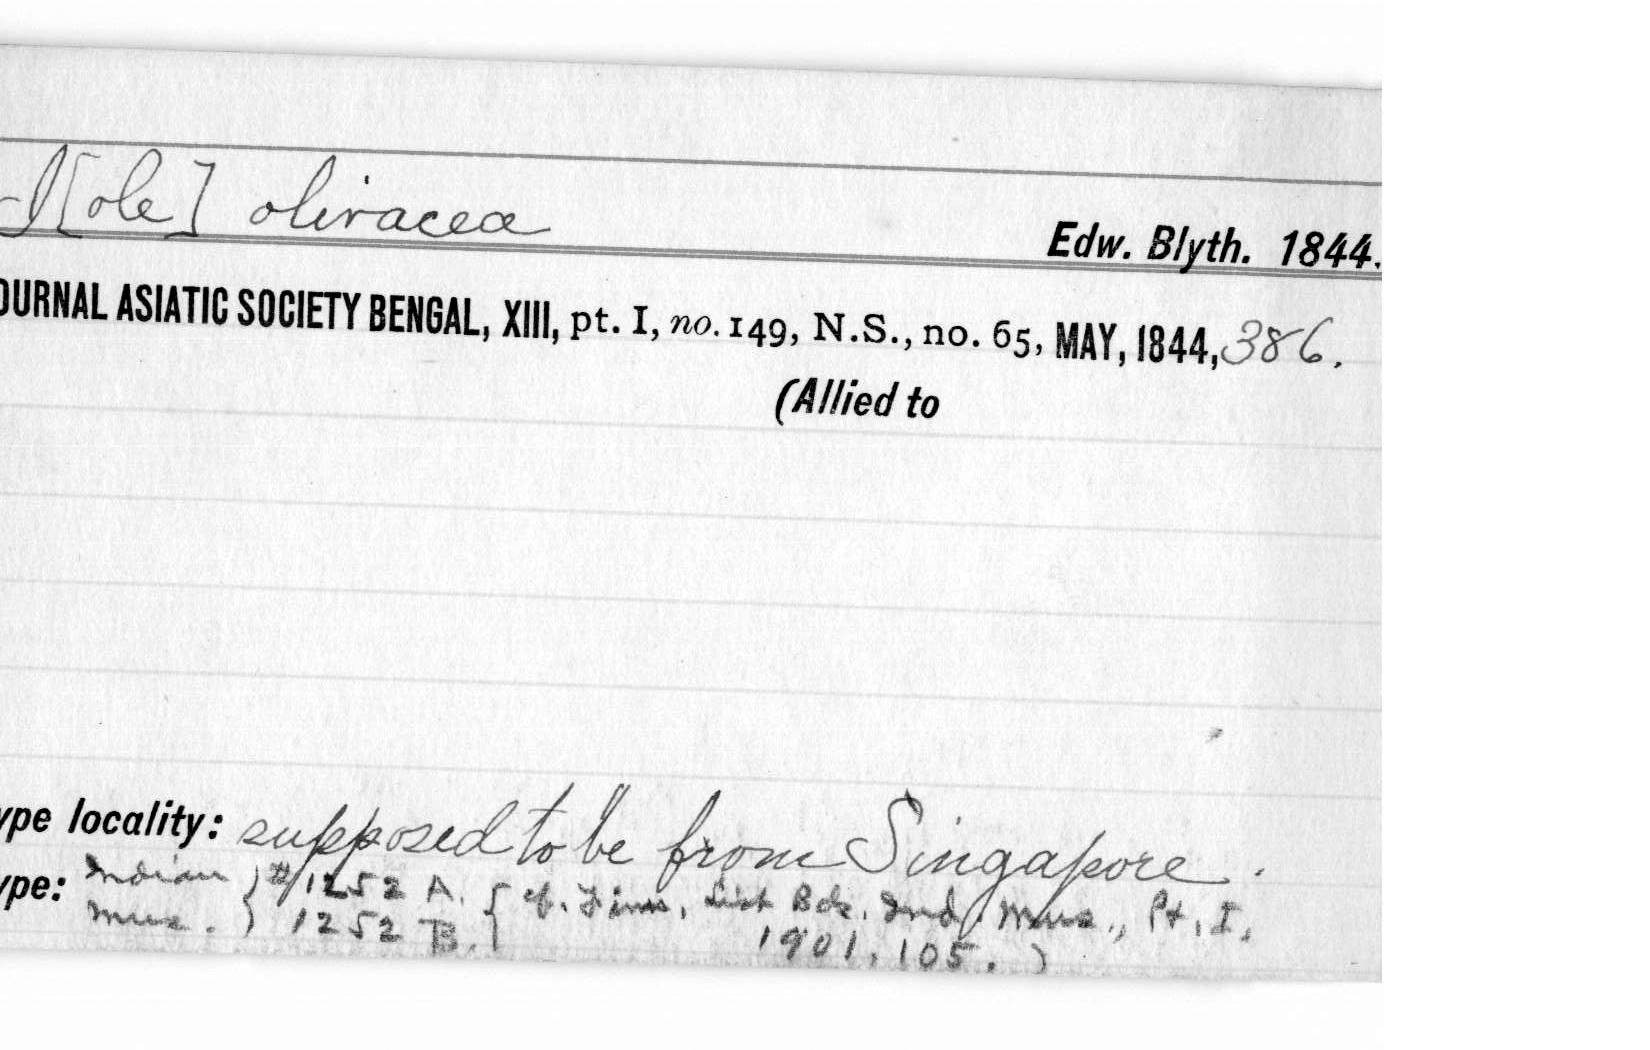 I[ole] olivacea
Edw. Blyth. 1844.
OURNAL ASIATIC SOCIETY BENGAL, XIII, pt. I, no. 149, N.S., no. 65, MAY, 1844, 386.
(Allied to
ype locality: supposed to be from Singapore.
ype: Indian } #1252 A. { cf. Finn, List Bds. Ind. Mus., Pt. I,
Mus. } 1252 B. { 1901, 105. )